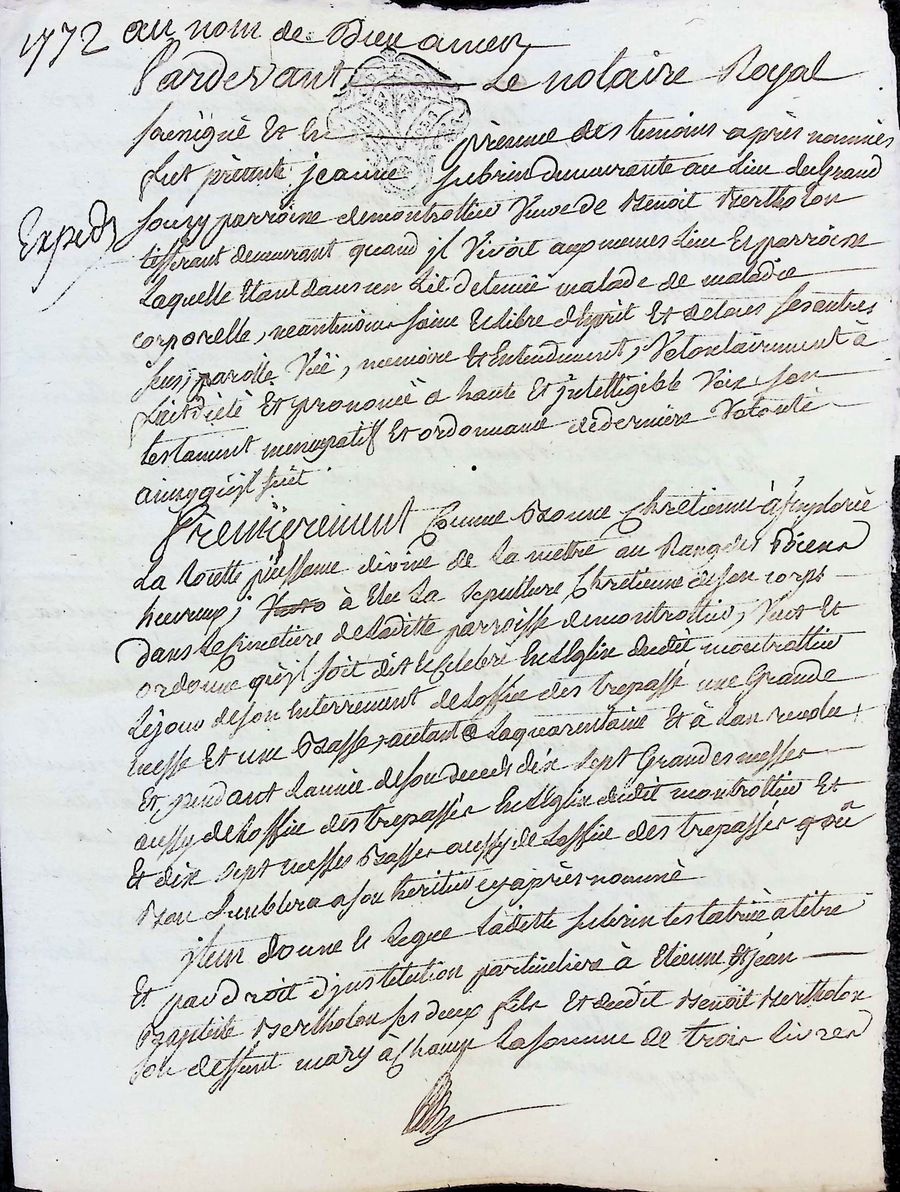 1772 au nom de Dieu amen
Pardevant Le notaire Royal
soussigné Et En présence des temoins après nommés
fut présente jeanne subrin demeurante au Lieu du Grand
Expedié
souzy parroisse demontrottier Veuve de Benoit Bertholon
tisserant demeurant quand jl Vivoit aux memes lieu Et parroisse
Laquelle Etant dans un Lit detenüe malade de maladie
corporelle, neantmoins saine Et libre d'Esprit Et de tous ses autres
sens, parolle Vüe, memoire Et Entendement, Volontairement à
fait dicté Et prononcé a haute Et jntelligible Voix son
testament nuncupatif Et ordonnance de derniere Volonté
ainsy qu'jl suit
Premierement Comme Bonne Chretienne à Jmploré
La toutte puissance divine de La mettre au Rang des Biens
heureux, à Elu La sepulture Chretienne de son corps
dans Le Cimetière de ladte parroisse demontrottier, Veut Et
ordonne qu'jl soit dit Et Celebré En L'Eglise dudit montrottier
Le jour de son Enterrement de Loffice des trepassé une Grande
messe Et une Basse, autant à La quarentaine Et à Lan revolu
Et pendant Lannée de son deceds dix sept Grandes messes
aussy de Loffice des trepassés En L'Eglise dudit montrottier Et
Et dix sept messes Basses aussy de Loffice des trepassés quou
Bon Semblera a son heritier cy après nommé
jtem donne Et Legue Ladte subrin testatrice a titre
Et par droit d'jnstitution particuliere à Etienne Et jean
Baptiste Bertholon ses deux fils Et dudit Benoit Bertholon
son deffunt mary à Chacun La somme de trois Livres